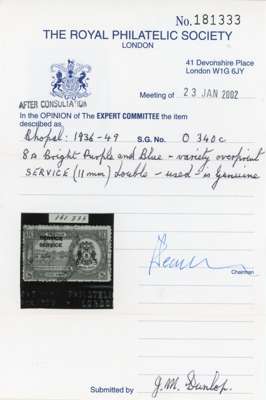 No. 181333
THE ROYAL PHILATELIC SOCIETY
LONDON
41 Devonshire Place
London W1G 6JY
Meeting of 23 JAN 2002
AFTER CONSULTATION
In the OPINION of The EXPERT COMMITTEE the item
described as
Bhopal: 1936-49 S.G. No. O 340c
8a Bright Purple and Blue - variety overprint
SERVICE (11mm) double - used - is Genuine
181 333
SERVICE
SERVICE
Chairman
Submitted by J.M. Dunlop.